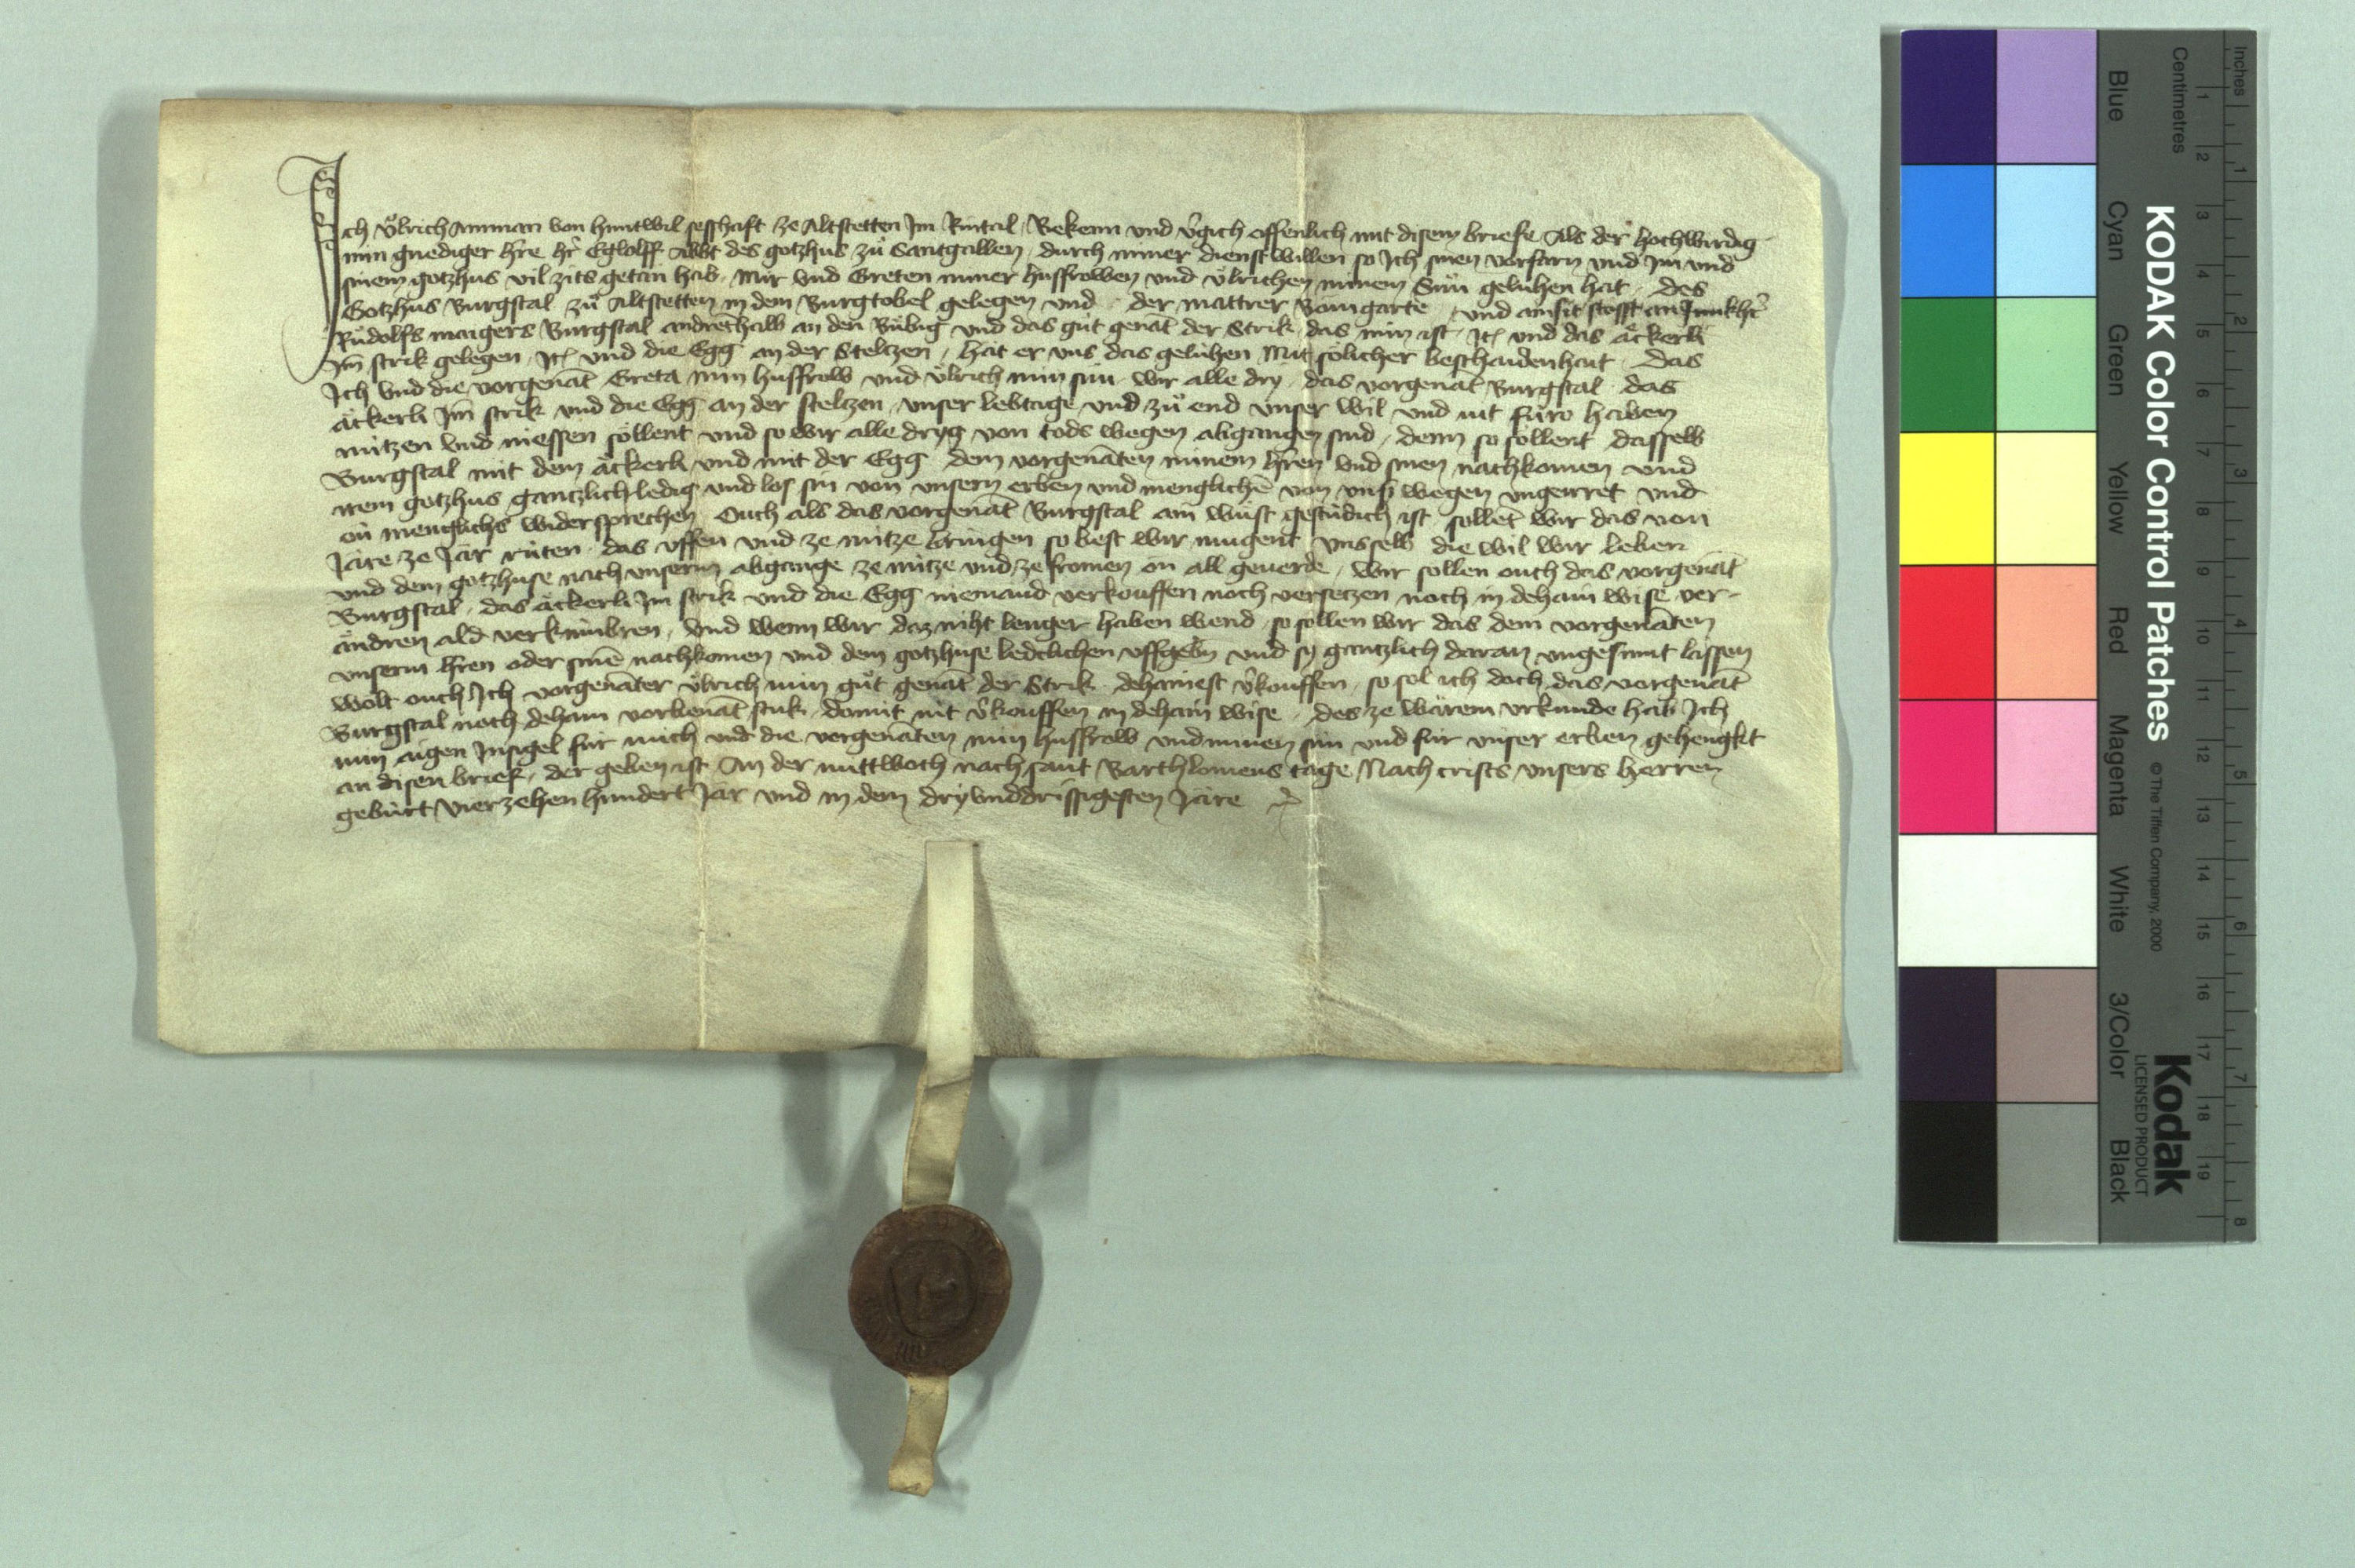 Ich Uͦlrich Amman von Huntwil sesshaft ze Altstetten Im Rintal Bekenn und v̂gich offenlich mit disem briefe Als der hochwirdig
min gnediger hr̄e hr̄ Eglolff Abbt des gotzhus zuͦ Santgallen durch miner dienst willen so Ich sinen vorfarn und Im und
sinem gotzhus vil zits getan hab mir und Greten miner husfrowen und Uͦlrichen minem Sun geluhen hat des
Gotzhus Burgstal zuͦ Altstetten in dem Burgtobel gelegen und der mattrer Bomgarte und ainsit stosst an Junkhr̄
Ruͦdolfs maigers Burgstal andrethalb an den Buͤbig und das guͦt genāt der Strik das min ist Itē und das aͤckerli
Im strik gelegen Itē und die Egg an der Steltzen hat er uns das geluhen Mit soͤlicher beschaidenhait Das
Ich und die vorgenāt Greta min husfrow und Uͦlrich min sun wir alle dry das vorgenāt Burgstal das
aͤckerli Im strik und die Egg an der steltzen unser lebtage und zuͦ end unser wil und nit fûro haben
nutzen und niessen soͤllent und so wir alle dryg von tods wegen abgangen sind denn so soͤllent dasselb
Burgstal mit dem aͤckerli und mit der Egg dem vorgenāten minem hr̄en und sinen nachkomen und
irem gotzhus gantzlich ledig und los sin von unsern erben und menglichē von uns wegen ungeirret und
on menglichs widersprechen Ouch als das vorgenāt Burgstal ain wuͤst gestuͤdich ist soͤllēt wir das von
Jare ze Jar ruten das uffen und ze nutze bringen so best wir mugent uns selb die wil wir leben
und dem gotzhuse nach unserm abgange ze nutze und ze fromen on all geuerde wir soͤllen ouch das vorgenāt
Burgstal das aͤckerli Im strik und die Egg niemand verkouffen noch versetzen noch in dehain wise ver-
aͤndren ald verkumbren und wenn wir daz niht lenger haben wend so soͤllen wir das dem vorgenāten
unserm hr̄en oder sinē nachkomen und dem gotzhuse ledclichen uffgebn̄ und sy gantzlich daran ungesumt lassen
Woͤlt ouch Ich vorgenāter Uͦlrich min guͦt genāt der Strik dehainest v̂kouffen so sol ich doch das vorgenāt
Burgstal noch dehain vorbenāt stuk domit nit v̂kouffen in dehain wise Des ze warem urkunde hab Ich
min aigen Insigel fûr mich und die vorgenāten min husfrow und minen sun und fûr unser erben gehengkt
an disen brief der geben ist An der mittwoch nach sant Bartholomeus tage Nach crists unsers herren
geburt vierzehen hundert Jar und in dem dryunddrissigesten Jare
KODAK Color Control Patches
© The Tiffen Company, 2000
Kodak
LICENSED PRODUCT
Inches
1 2 3 4 5 6 7 8
Centimetres
1 2 3 4 5 6 7 8 9 10 11 12 13 14 15 16 17 18 19
Blue Cyan Green Yellow Red Magenta White 3/Color Black